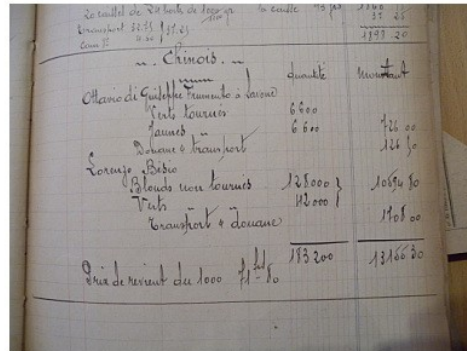 20 caittes de 24 boîts de 1000 gr la caisse
Transport 32.75 } 37.25
Com on 4.50
31 25
1898 20
Chinois
quantité montant
Ottavio di Guiseppe Frumento à Savone
Verts tournés 6600
Jaunes 6600 726 00
Douane & transport 126 50
Lorenzo Besio
Blonds non tournés 128000 } 10594 80
Verts 42000
Transport & douane 1708 00
183200 13155 30
Prix de revient du 1000 71 80